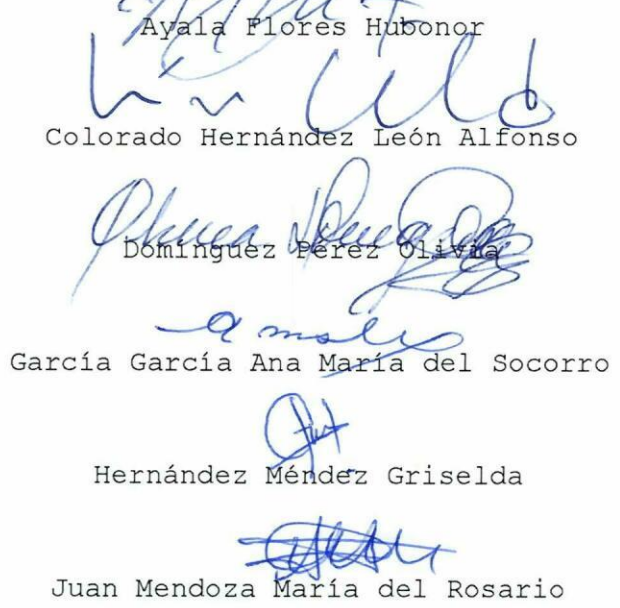 Ayala Flores Hubonor
Colorado Hernández León Alfonso
Domínguez Pérez Olivia
García García Ana María del Socorro
Hernández Méndez Griselda
Juan Mendoza María del Rosario